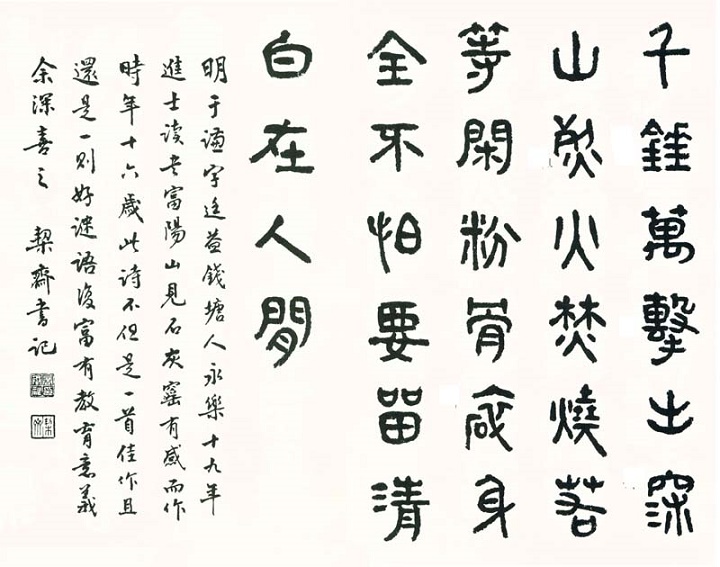 千錘萬擊出深
山烈火焚燒若
等閑粉骨碎身
全不怕要留清
白在人閒
明于谦字廷益錢塘人永樂十九年
進士读书富陽山見石灰窰有感而作
時年十六歲此诗不但是一首佳作且
還是一则好谜語復富有教育意義
余深喜之 契齋書記